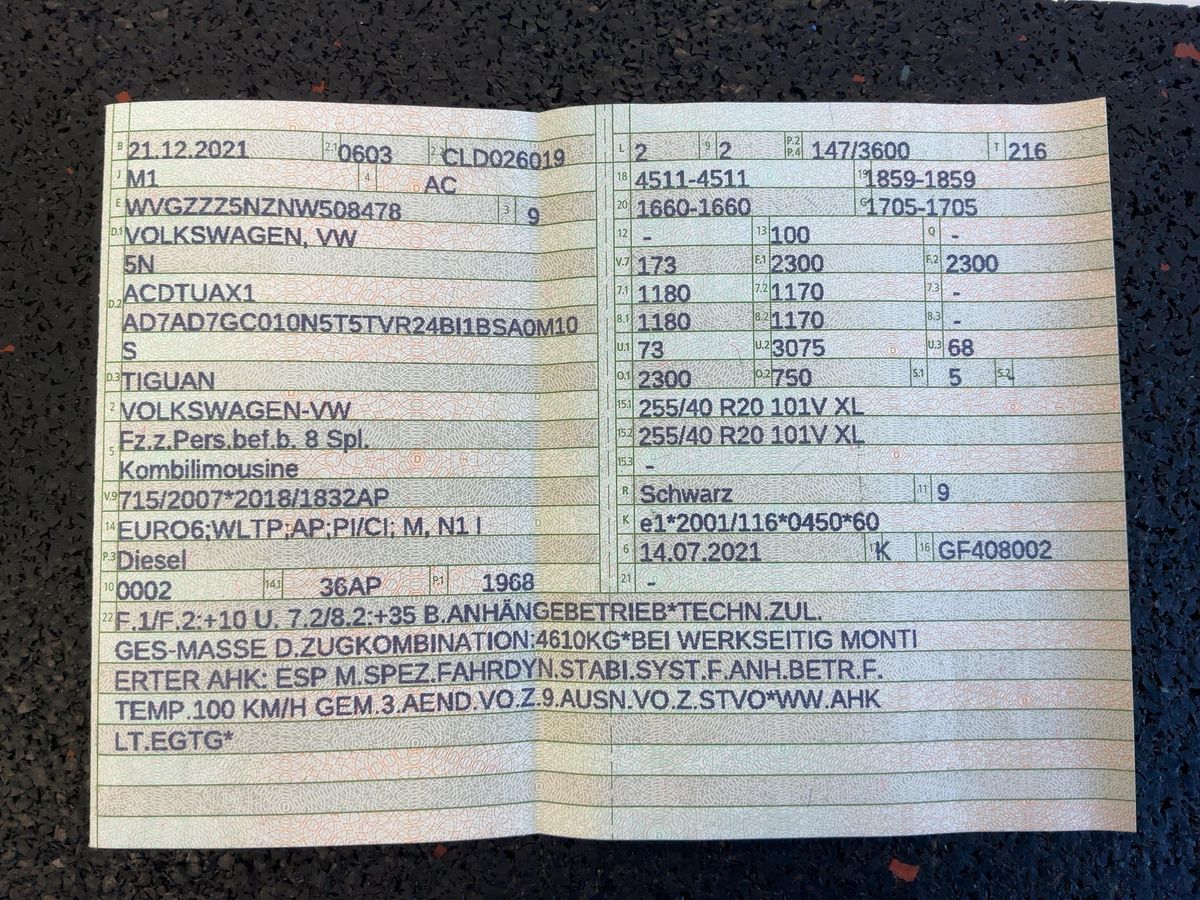 B 21.12.2021 2.1 0603 2.2 CLD026019
J M1 4 AC
E WVGZZZ5NZNW508478 3 9
D.1 VOLKSWAGEN, VW
5N
D.2 ACDTUAX1
AD7AD7GC010N5T5TVR24BI1BSA0M10
S
D.3 TIGUAN
2 VOLKSWAGEN-VW
5 Fz.z.Pers.bef.b. 8 Spl.
Kombilimousine
V.9 715/2007*2018/1832AP
14 EURO6;WLTP;AP;PI/CI; M, N1 I
P.3 Diesel
10 0002 14.1 36AP P.1 1968
L 2 9 2 P.2 P.4 147/3600 T 216
18 4511-4511 19 1859-1859
20 1660-1660 G 1705-1705
12 - 13 100 Q -
V.7 173 F.1 2300 F.2 2300
7.1 1180 7.2 1170 7.3 -
8.1 1180 8.2 1170 8.3 -
U.1 73 U.2 3075 U.3 68
O.1 2300 O.2 750 S.1 5 S.2 -
15.1 255/40 R20 101V XL
15.2 255/40 R20 101V XL
15.3 -
R Schwarz 11 9
K e1*2001/116*0450*60
6 14.07.2021 17 K 16 GF408002
21 -
22 F.1/F.2:+10 U. 7.2/8.2:+35 B.ANHÄNGEBETRIEB*TECHN.ZUL.
GES-MASSE D.ZUGKOMBINATION:4610KG*BEI WERKSEITIG MONTI
ERTER AHK: ESP M.SPEZ.FAHRDYN.STABI.SYST.F.ANH.BETR.F.
TEMP.100 KM/H GEM.3.AEND.VO.Z.9.AUSN.VO.Z.STVO*WW.AHK
LT.EGTG*